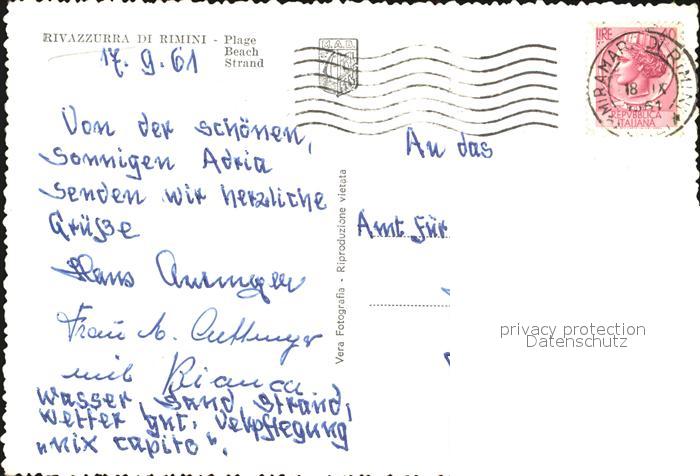 RIVAZZURRA DI RIMINI - Plage
Beach
Strand
17. 9. 61
M.A.B.
LIRE
MIRAMARE DI RIMINI
18 IX
1961
REPVBBLICA
ITALIANA
Von der schönen,
Sonnigen Adria
senden wir herzliche
Grüße
Hans
Frau
mit Bianca
Wasser, Sand Strand,
Wetter gut. Verpflegung
„nix capito".
Vera Fotografia - Riproduzione vietata
An das
Amt für
privacy protection
Datenschutz